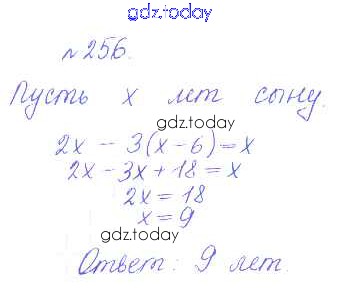 gdz.today
№256.
Пусть x лет сыну.
gdz.today
2x - 3(x-6)=x
2x - 3x + 18 = x
2x = 18
x = 9
gdz.today
Ответ: 9 лет.